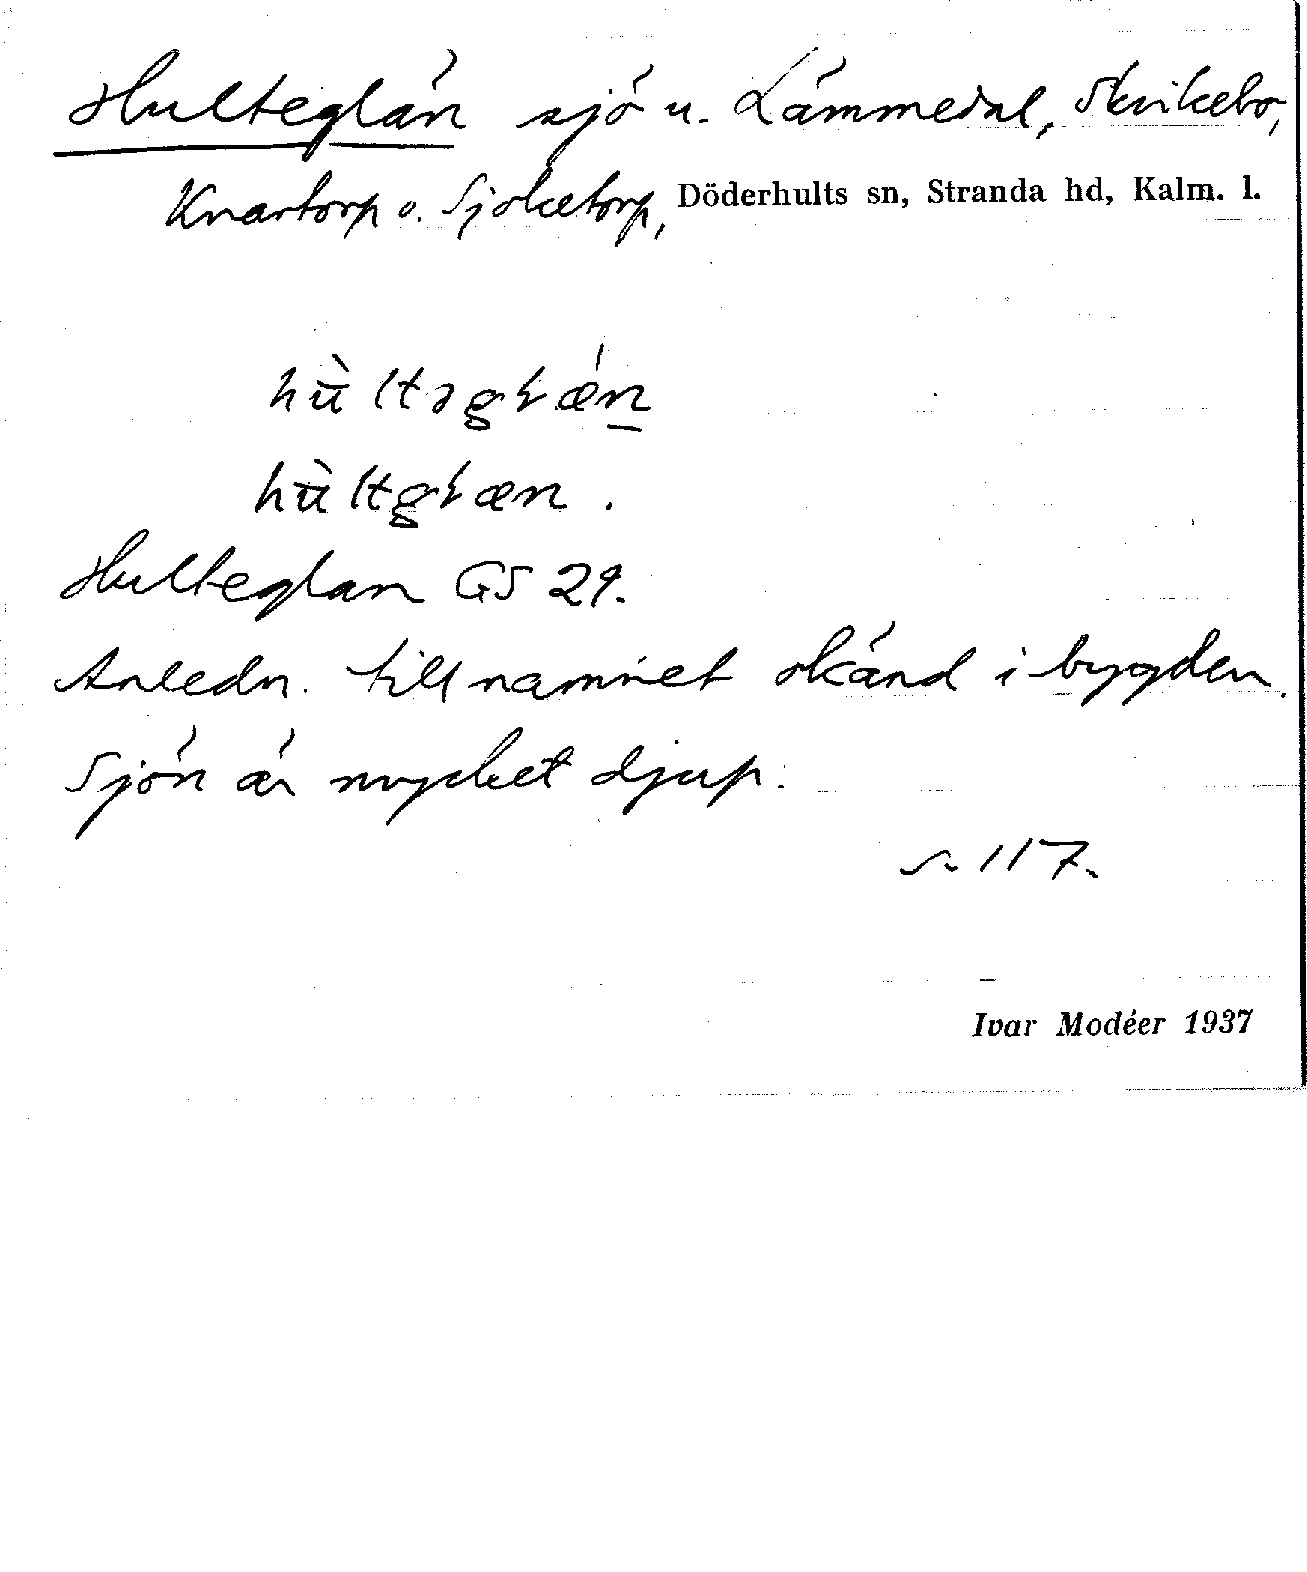 Hulteglän sjö u. Lämmedal, Skvikebo,
Knartorp o. Sjöketorp, Döderhults sn, Stranda hd, Kalm. l.
hùltəgɫǽn
hùltgɫæn.
Hulteglan GS 29.
Anledn. till namnet okänd i bygden.
Sjön är mycket djup.
s. 117.
Ivar Modéer 1937